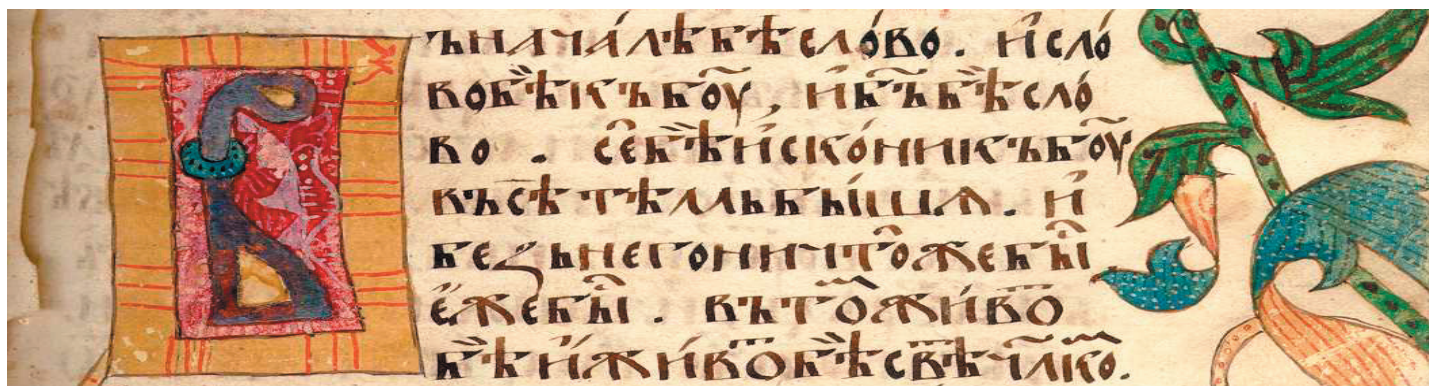 Въ нача́лѣ бѣ сло́во. и҆ сло́
во бѣ̏ къ бо҃у, и҆ б҃ъ бѣ̏ сло́
во. се̑ бѣ̏ и҆ско́ни къ бо҃у
въсѣ̀ тѣ́мь бы́шѧ. и҆
беꙁь него ничто́же бы̑
є҆́же бы̑. въ то́ живо
бѣ̏ и҆ живо́ бѣ̏ свѣ ч҃лко.